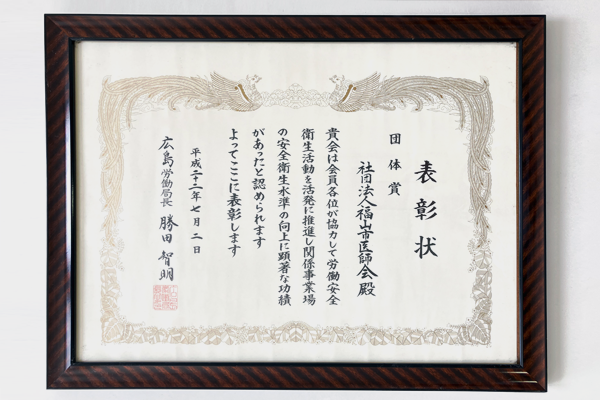 表彰状
団体賞
社団法人福山市医師会殿
貴会は会員各位が協力して労働安全
衛生活動を活発に推進し関係事業場
の安全衛生水準の向上に顕著な功績
があったと認められます
よってここに表彰します
平成二十二年七月二日
広島労働局長 勝田智明